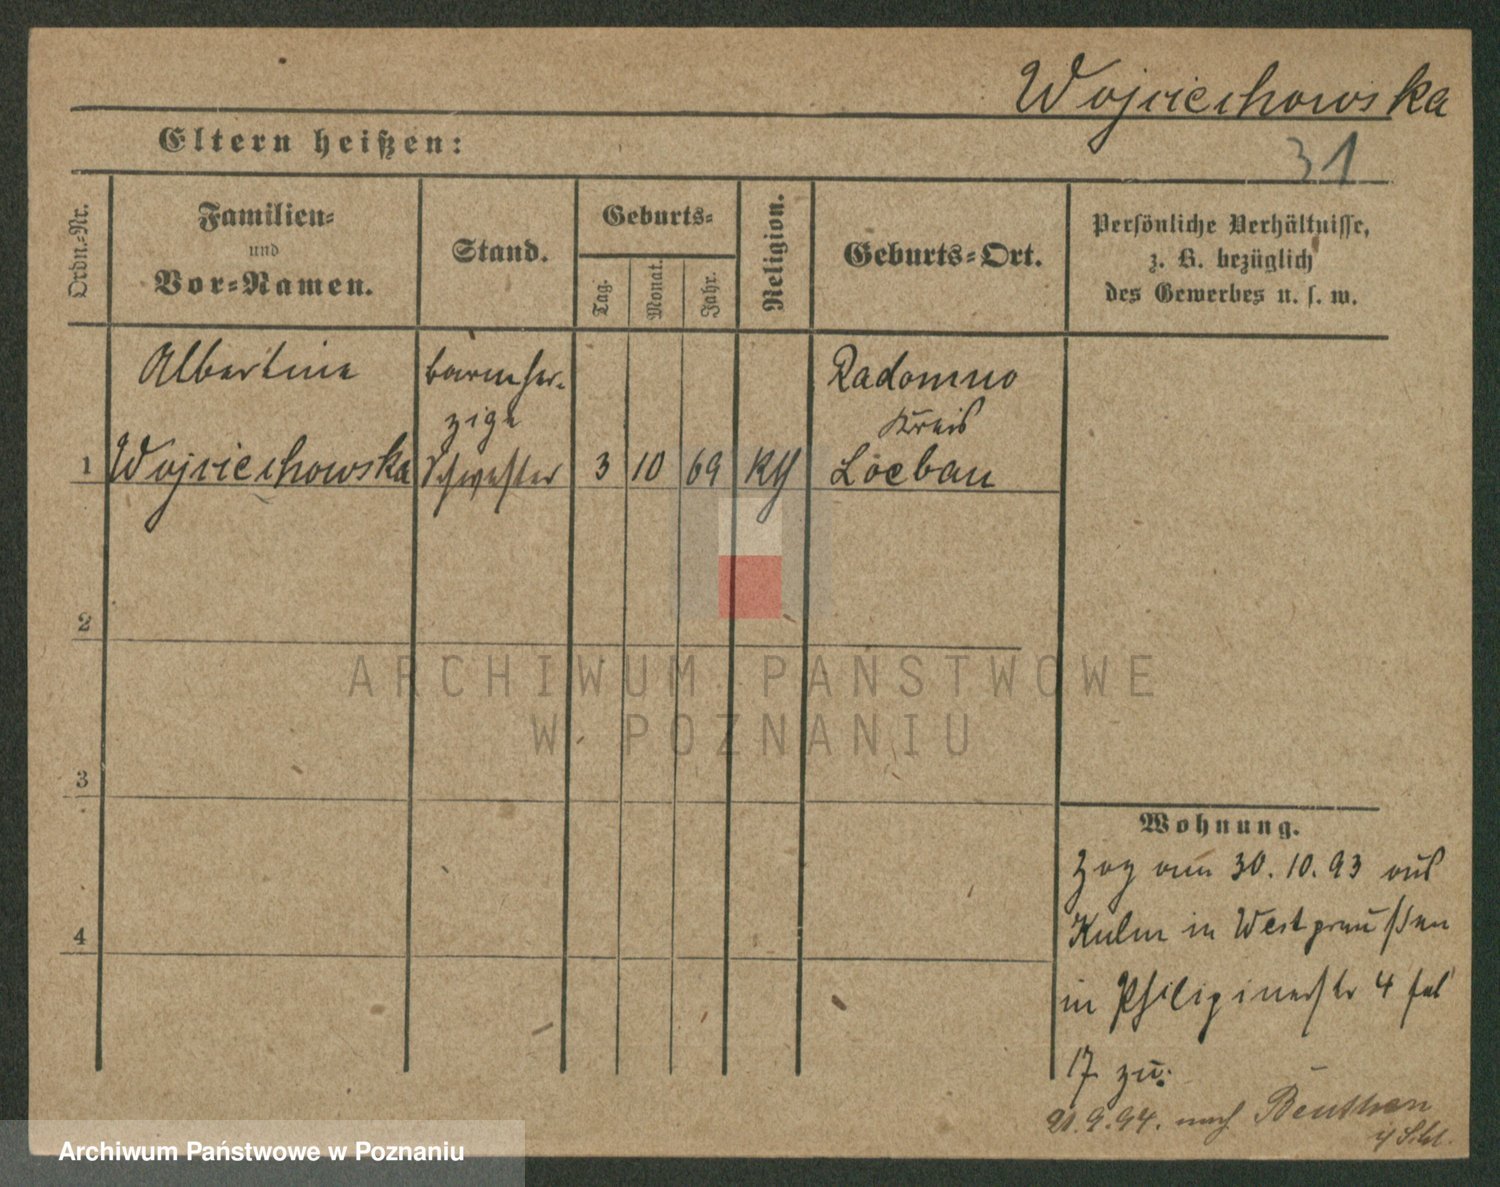 Wojciechowska
31
Eltern heißen:
Ordn.-Nr.
Familien-
und
Vor-Namen.
Stand.
Geburts-
Tag.
Monat.
Jahr.
Religion.
Geburts-Ort.
Persönliche Verhältnisse,
z. B. bezüglich
des Gewerbes u. s. w.
Albertine
barmher-
zige
Radomno
Kreis
1 Wojciechowska Schwester 3 10 69 Kth Loebau
2
3
4
ARCHIWUM PAŃSTWOWE
W POZNANIU
Wohnung.
Zog am 30.10.93 aus
Kulm in Westpreußen
in Philipinerstr 4
17 zu.
21.9.94. nach Beuthen
Archiwum Państwowe w Poznaniu